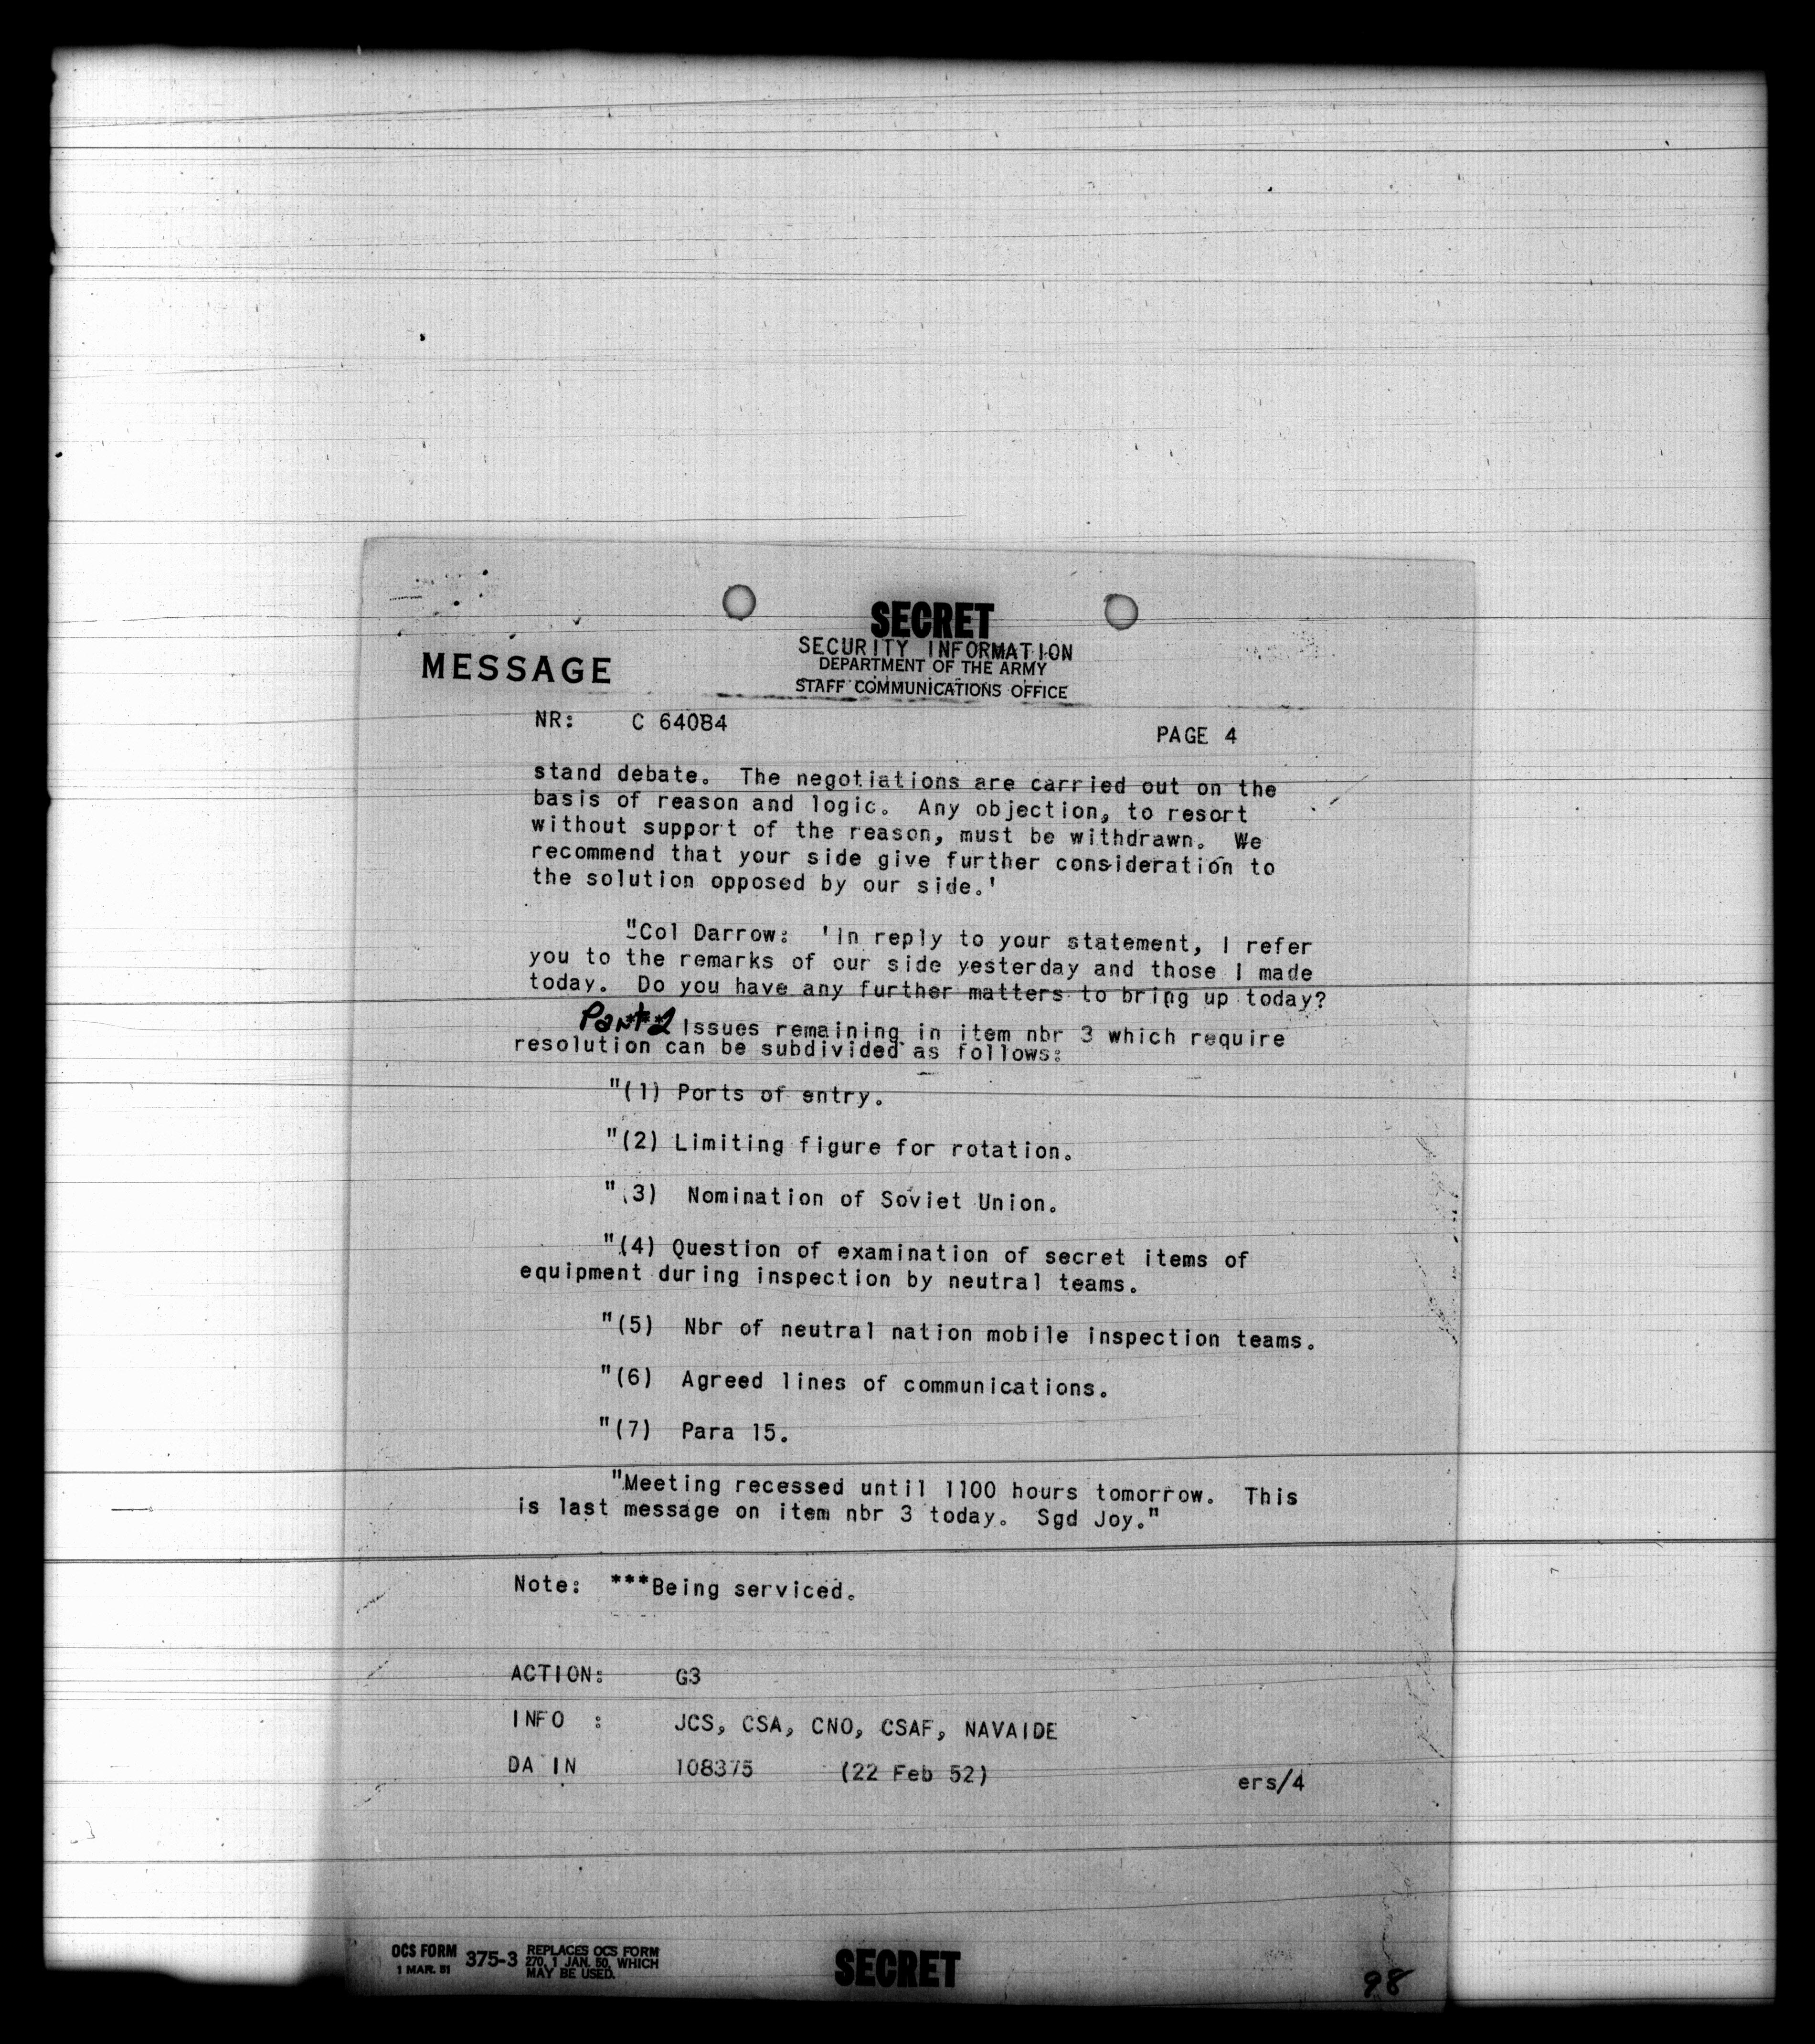 SECRET
SECURITY INFORMATION
MESSAGE
DEPARTMENT OF THE ARMY
STAFF COMMUNICATIONS OFFICE
NR: C 64084
PAGE 4
stand debate. The negotiations are carried out on the
basis of reason and logic. Any objection, to resort
without support of the reason, must be withdrawn. We
recommend that your side give further consideration to
the solution opposed by our side.'
"Col Darrow: 'In reply to your statement, I refer
you to the remarks of our side yesterday and those I made
today. Do you have any further matters to bring up today?
Part 2 Issues remaining in item nbr 3 which require
resolution can be subdivided as follows:
"(1) Ports of entry.
"(2) Limiting figure for rotation.
"(3) Nomination of Soviet Union.
"(4) Question of examination of secret items of
equipment during inspection by neutral teams.
"(5) Nbr of neutral nation mobile inspection teams.
"(6) Agreed lines of communications.
"(7) Para 15.
"Meeting recessed until 1100 hours tomorrow. This
is last message on item nbr 3 today. Sgd Joy."
Note: ***Being serviced.
ACTION: G3
INFO : JCS, CSA, CNO, CSAF, NAVAIDE
DA IN 108375 (22 Feb 52)
ers/4
OCS FORM
1 MAR. 51
375-3
REPLACES OCS FORM
270, 1 JAN. 50, WHICH
MAY BE USED.
SECRET
98